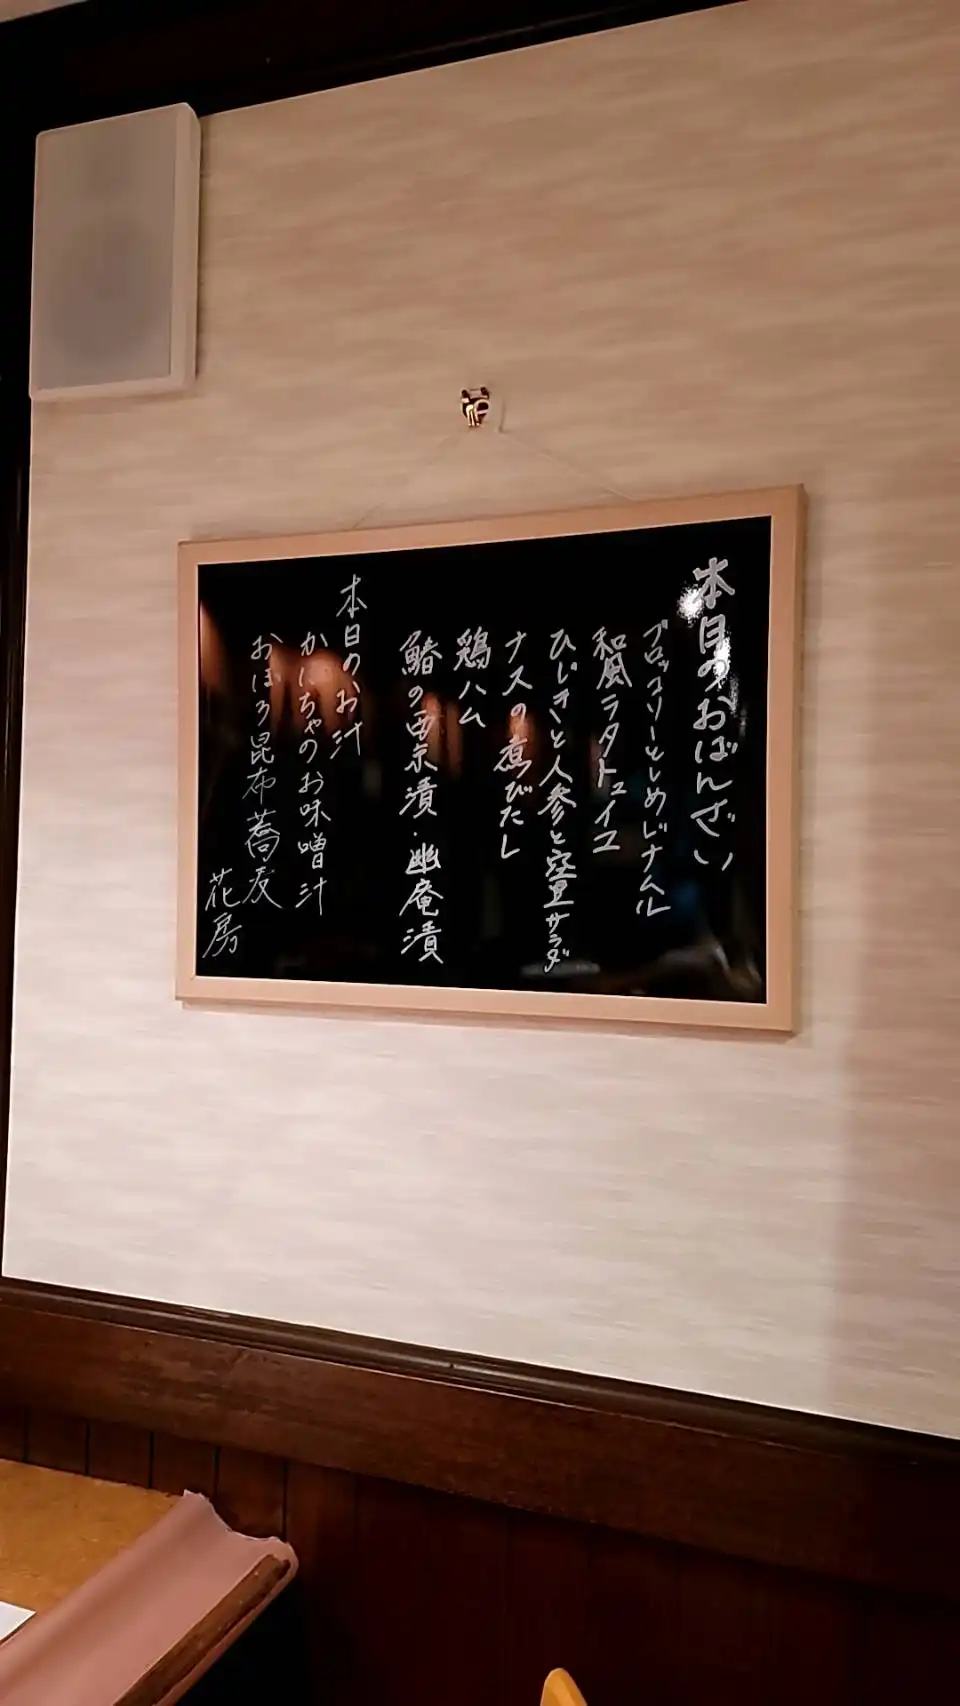 本日のおばんざい
ブロッコリーとしめじナムル
和風ラタトュイユ
ひじきと人参と空豆サラダ
ナスの煮びたし
鶏ハム
鰆の西京漬・幽庵漬
本日のお汁
かにちゃのお味噌汁
おぼろ昆布蕎麦
花房